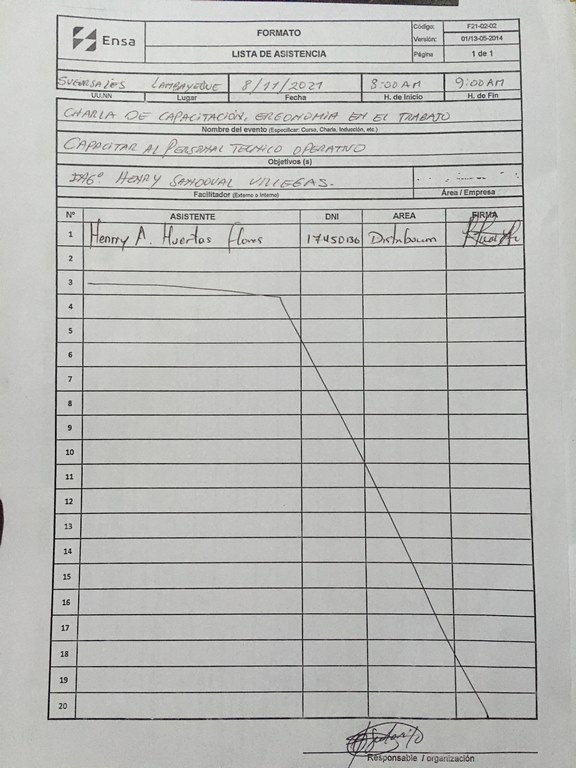 Ensa
FORMATO
LISTA DE ASISTENCIA
Código: F21-02-02
Versión: 01/13-05-2014
Página 1 de 1
SUCURSALES LAMBAYEQUE 8/11/2021 8:00 AM 9:00 AM
UU.NN Lugar Fecha H. de Inicio H. de Fin
CHARLA DE CAPACITACIÓN, ERGONOMIA EN EL TRABAJO
Nombre del evento (Especificar: Curso, Charla, Inducción, etc.)
CAPACITAR AL PERSONAL TECNICO OPERATIVO
Objetivos (s)
HENRY SANDOVAL VILLEGAS.
Facilitador (Externo o Interno) Área / Empresa
N° ASISTENTE DNI AREA FIRMA
1 Henrry A. Huertas Flores 17450136
2
3
4
5
6
7
8
9
10
11
12
13
14
15
16
17
18
19
20
Responsable / organización